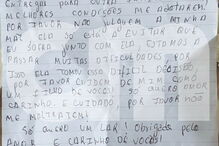 ENTREGAS PARA OUTRA
MELHORES CONDIÇÕES ME ADOTAREM!
POR FAVOR NÃO JULGUEM A MINHA
MÃE ELA SÓ ESTÁ EVITAR QUE
EU SOFRA JUNTO COM ELA, ESTAMOS A
PASSAR MUITAS DIFICULDADES POR
ISSO ELA TOMOU ESSA DIFICIL DECISÃO
POR FAVOR CUIDEM DE MIM COMO
UM FILHO DE VOCÊS! SÓ QUERO AMOR
CARINHO E CUIDADO, POR FAVOR NÃO
ME MALTRATEM!
SÓ QUERO UM LAR! OBRIGADA PELO
AMOR E CARINHO DE VOCÊS!